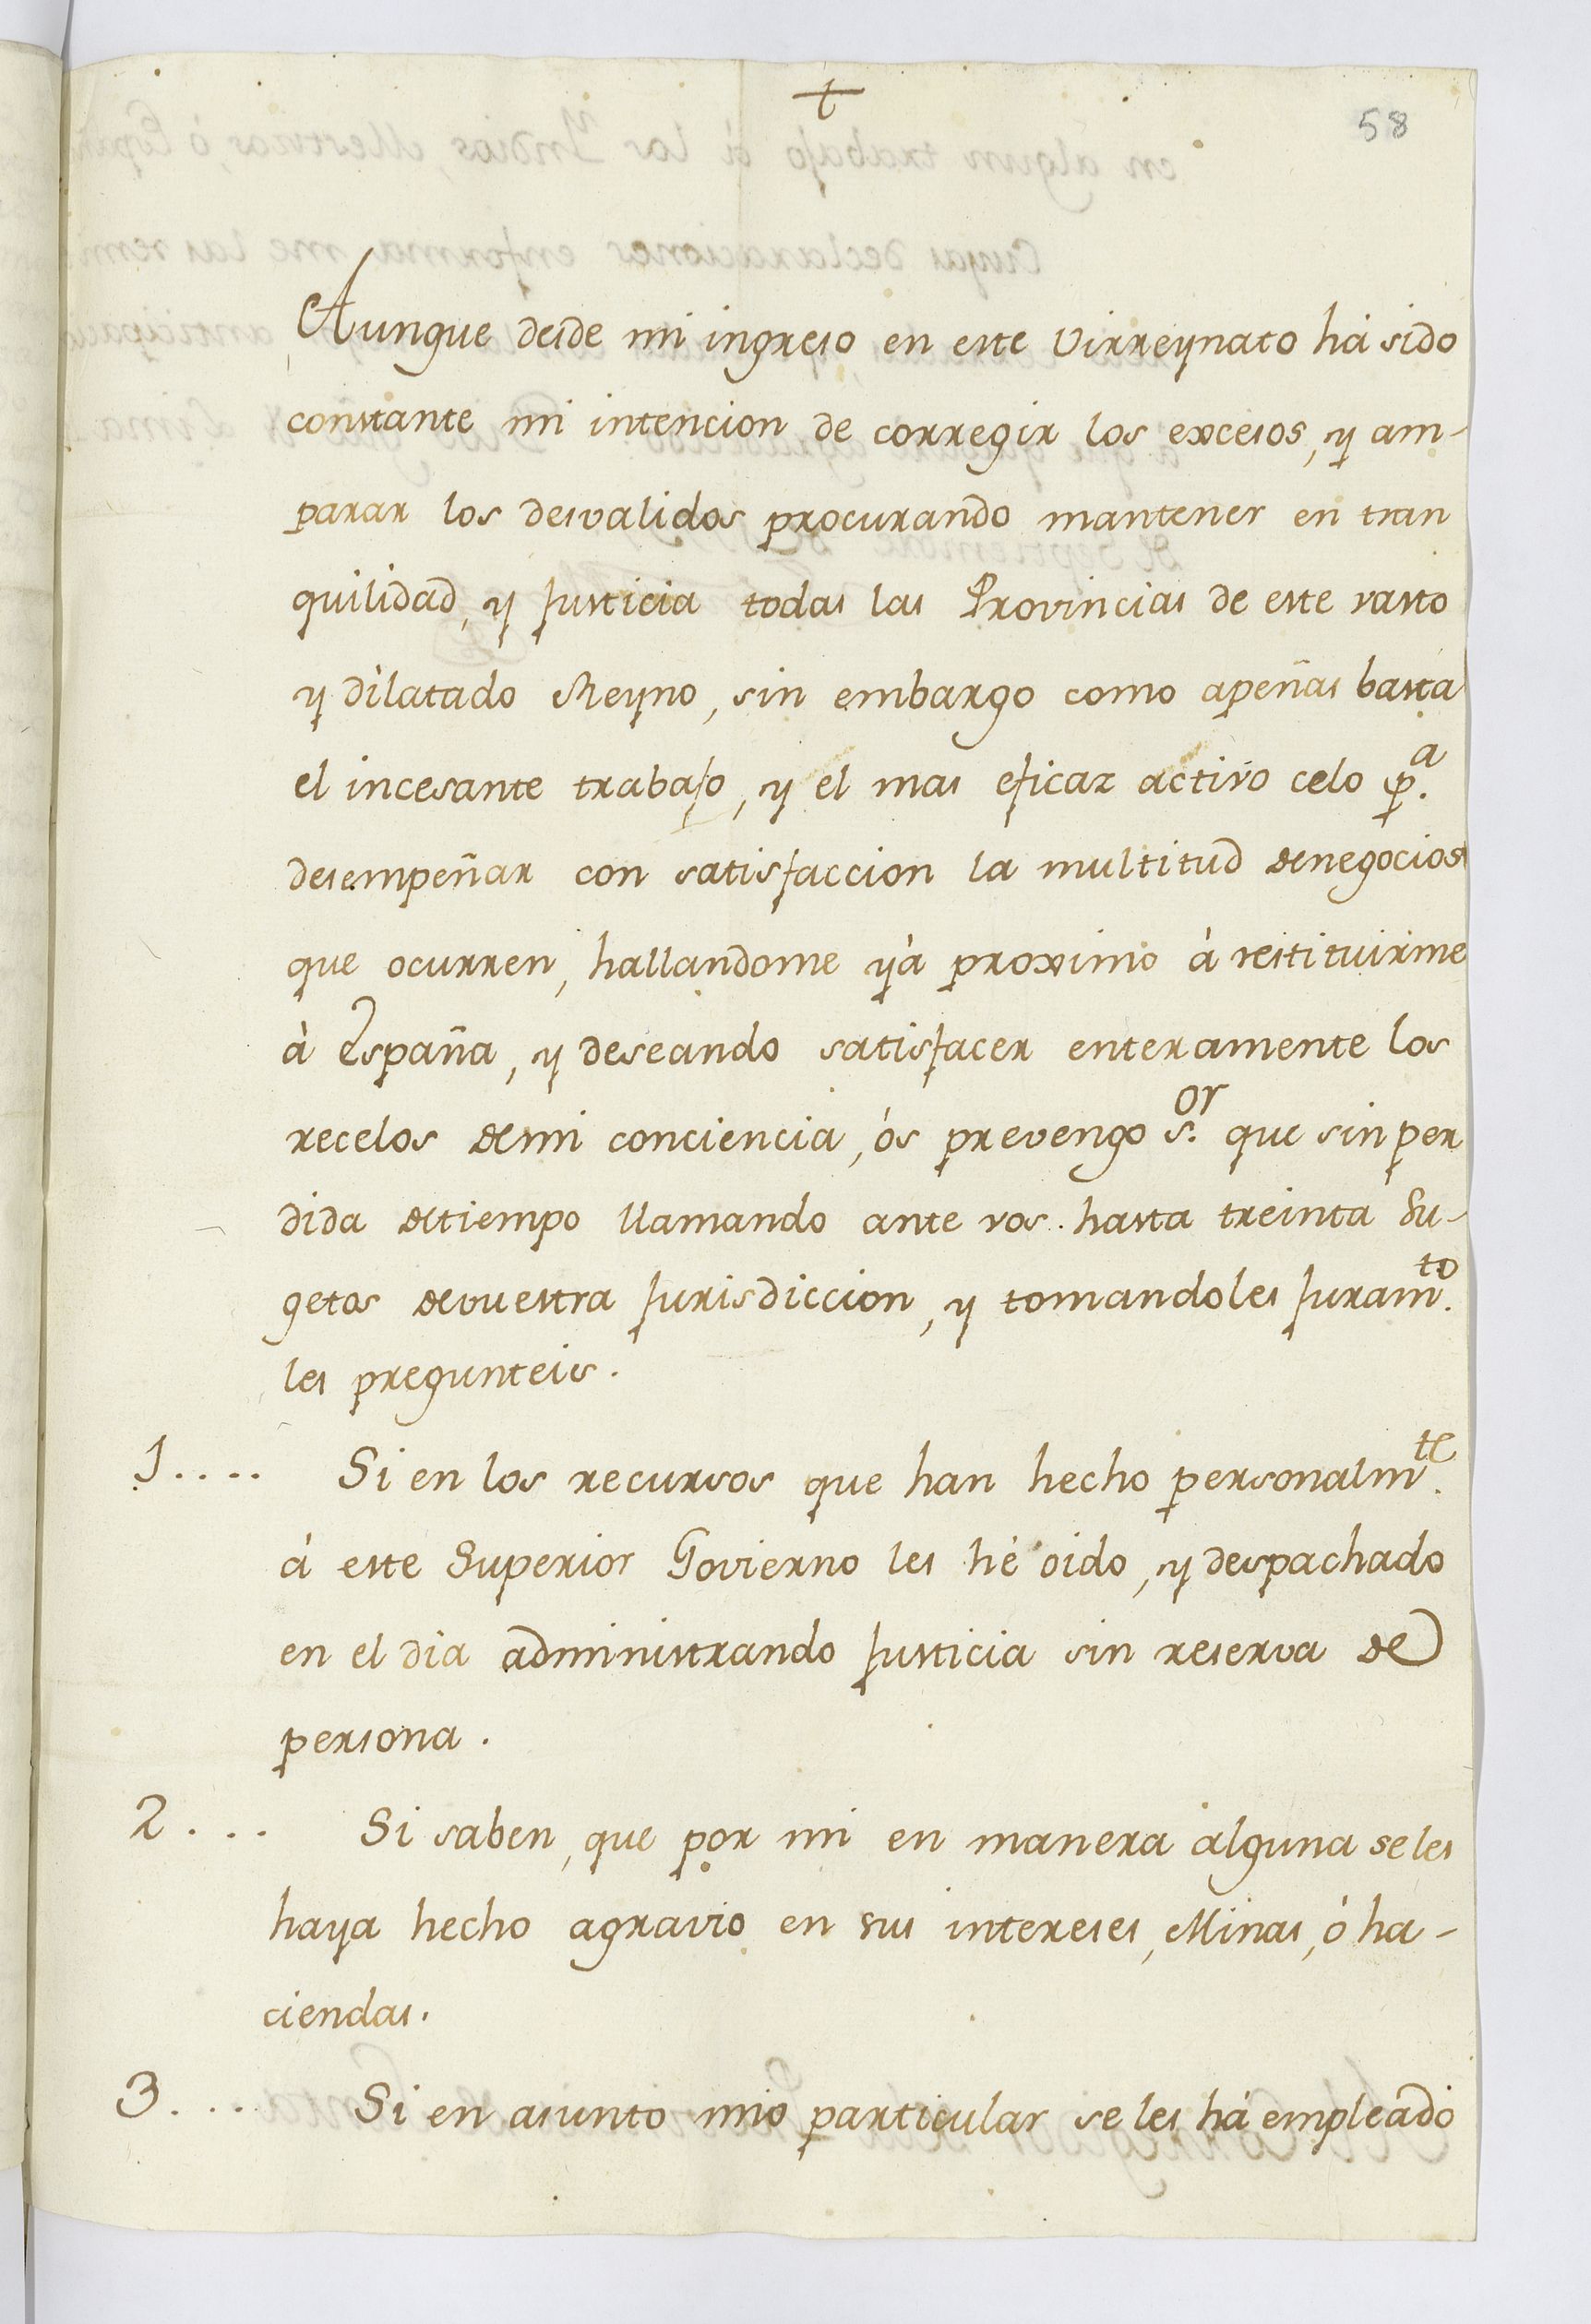 +
58
Aunque desde mi ingreso en este Virreynato há sido
constante mi intencion de corregir los excesos, y am-
parar los desvalidos procurando mantener en tran
quilidad, y Justicia todas las Provincias de este vasto
y dilatado Reyno, sin embargo como apeñas basta
el incesante trabajo, y el mas eficaz activo celo p.ª
desempeñar con satisfaccion la multitud de negocios
que ocurren, hallandome yà proximo à restituirme
à España, y deseando satisfacer enteramente los
recelos de mi conciencia, ós prevengo s.or que sin per
dida de tiempo llamando ante vos hasta treinta Su-
getos de vuestra Jurisdiccion, y tomandoles Juram.to
les pregunteis.
1.... Si en los recursos que han hecho personalm.te
á este Superior Govierno les hé oido, y despachado
en el dia administrando Justicia sin reserva de
persona.
2... Si saben, que por mi en manera alguna se les
haya hecho agravio en sus intereses, Minas, ó ha-
ciendas.
3.... Si en asunto mio particular se les há empleado